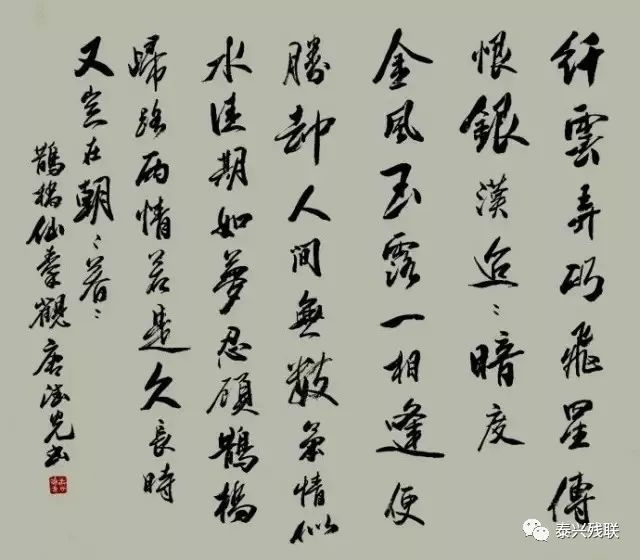 纤雲弄巧飛星傳
恨銀漢迢〻暗度
金風玉露一相逢便
勝却人間無數柔情似
水佳期如夢忍顧鵲橋
歸路兩情若是久長時
又豈在朝〻暮〻
鵲橋仙秦觀唐光書
泰兴残联